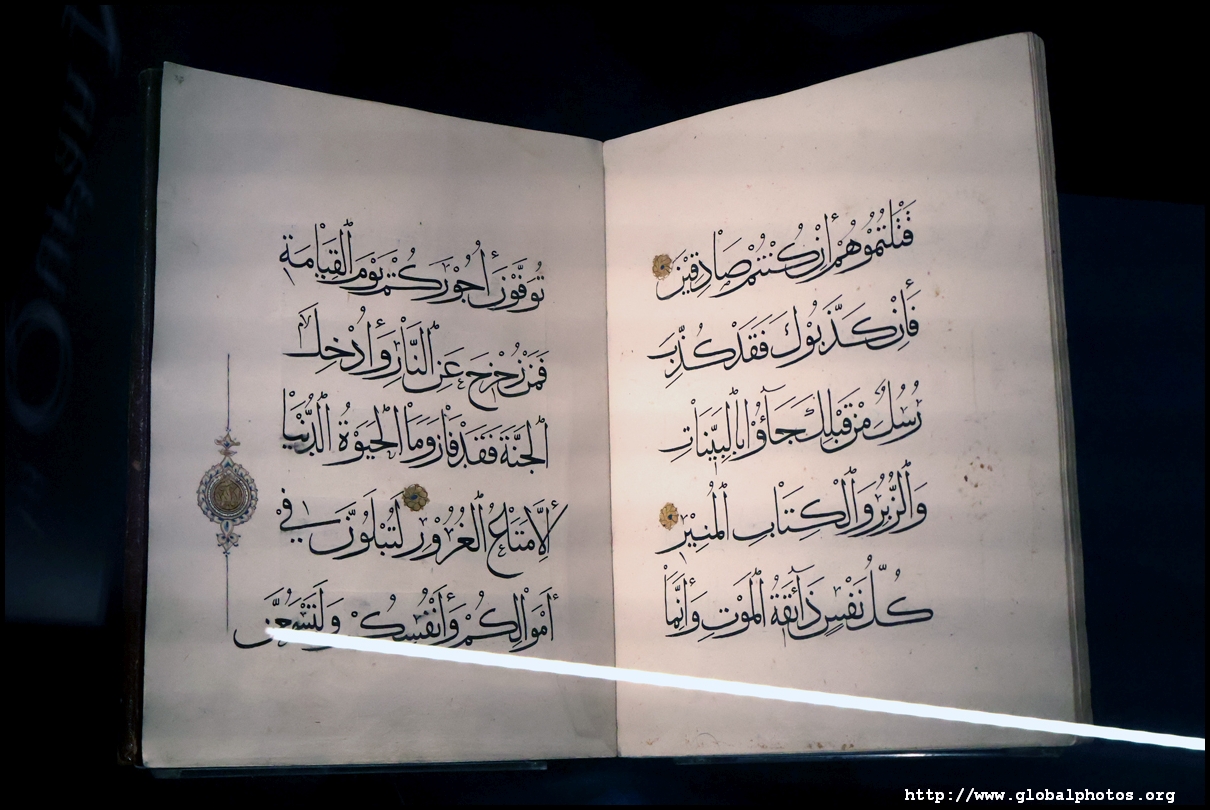 قَتَلْتُمُوهُمْ إِنْ كُنْتُمْ صَادِقِيْنَ
فَإِنْ كَذَّبُوْكَ فَقَدْ كُذِّبَ
رُسُلٌ مِنْ قَبْلِكَ جَآؤُا بِالْبَيِّنَاتِ
وَالزُّبُرِ وَالْكِتَابِ الْمُنِيْرِ
كُلُّ نَفْسٍ ذَآئِقَةُ الْمَوْتِ وَإِنَّمَا
تُوَفَّوْنَ أُجُوْرَكُمْ يَوْمَ الْقِيَامَةِ
فَمَنْ زُحْزِحَ عَنِ النَّارِ وَأُدْخِلَ
الْجَنَّةَ فَقَدْ فَازَ وَمَا الْحَيَوٰةُ الدُّنْيَا
إِلَّا مَتَاعُ الْغُرُوْرِ لَتُبْلَوُنَّ فِي
أَمْوَالِكُمْ وَأَنْفُسِكُمْ وَلَتَسْمَعُنَّ
http://www.globalphotos.org